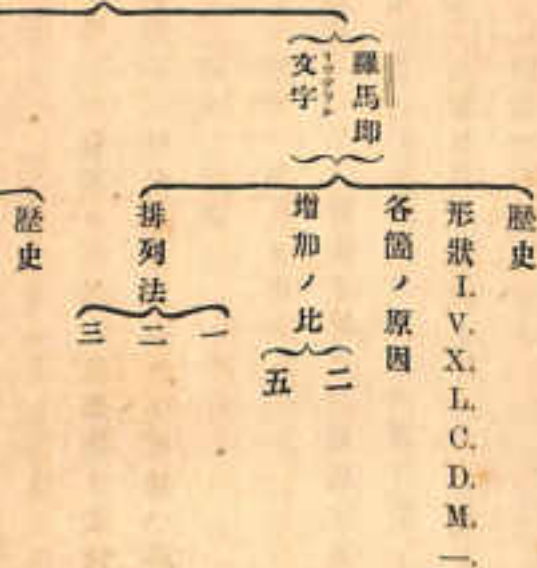 羅馬即
文字
歷史
形狀 I. V. X. L. C. D. M. —.
各箇ノ原因
增加ノ比
二
五
排列法
一
二
三
歷史